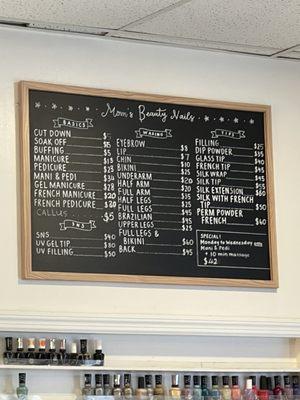 Mom's Beauty Nails
BASICS
CUT DOWN $5
SOAK OFF $15
BUFFING $5
MANICURE $13
PEDICURE $23
MANI & PEDI
GEL MANICURE $28
FRENCH MANICURE $20
FRENCH PEDICURE
CALLUS $5
SNS
SNS $40
UV GEL TIP $80
UV FILLING $50
WAXING
EYEBROW $8
LIP $5
CHIN $7
BIKINI
UNDERARM
HALF ARM $20
FULL ARM
HALF LEGS
FULL LEGS
BRAZILIAN $45
UPPER LEGS $25
FULL LEGS &
BIKINI $40
BACK $45
TIPS
FILLING $25
DIP POWDER
GLASS TIP $40
FRENCH TIP $45
SILK WRAP
SILK TIP
SILK EXTENSION $60
SILK WITH
FRENCH TIP $50
PERM POWDER
FRENCH $40
SPECIAL!
Monday to Wednesday
Mani & Pedi
+ 10 min massage
$42